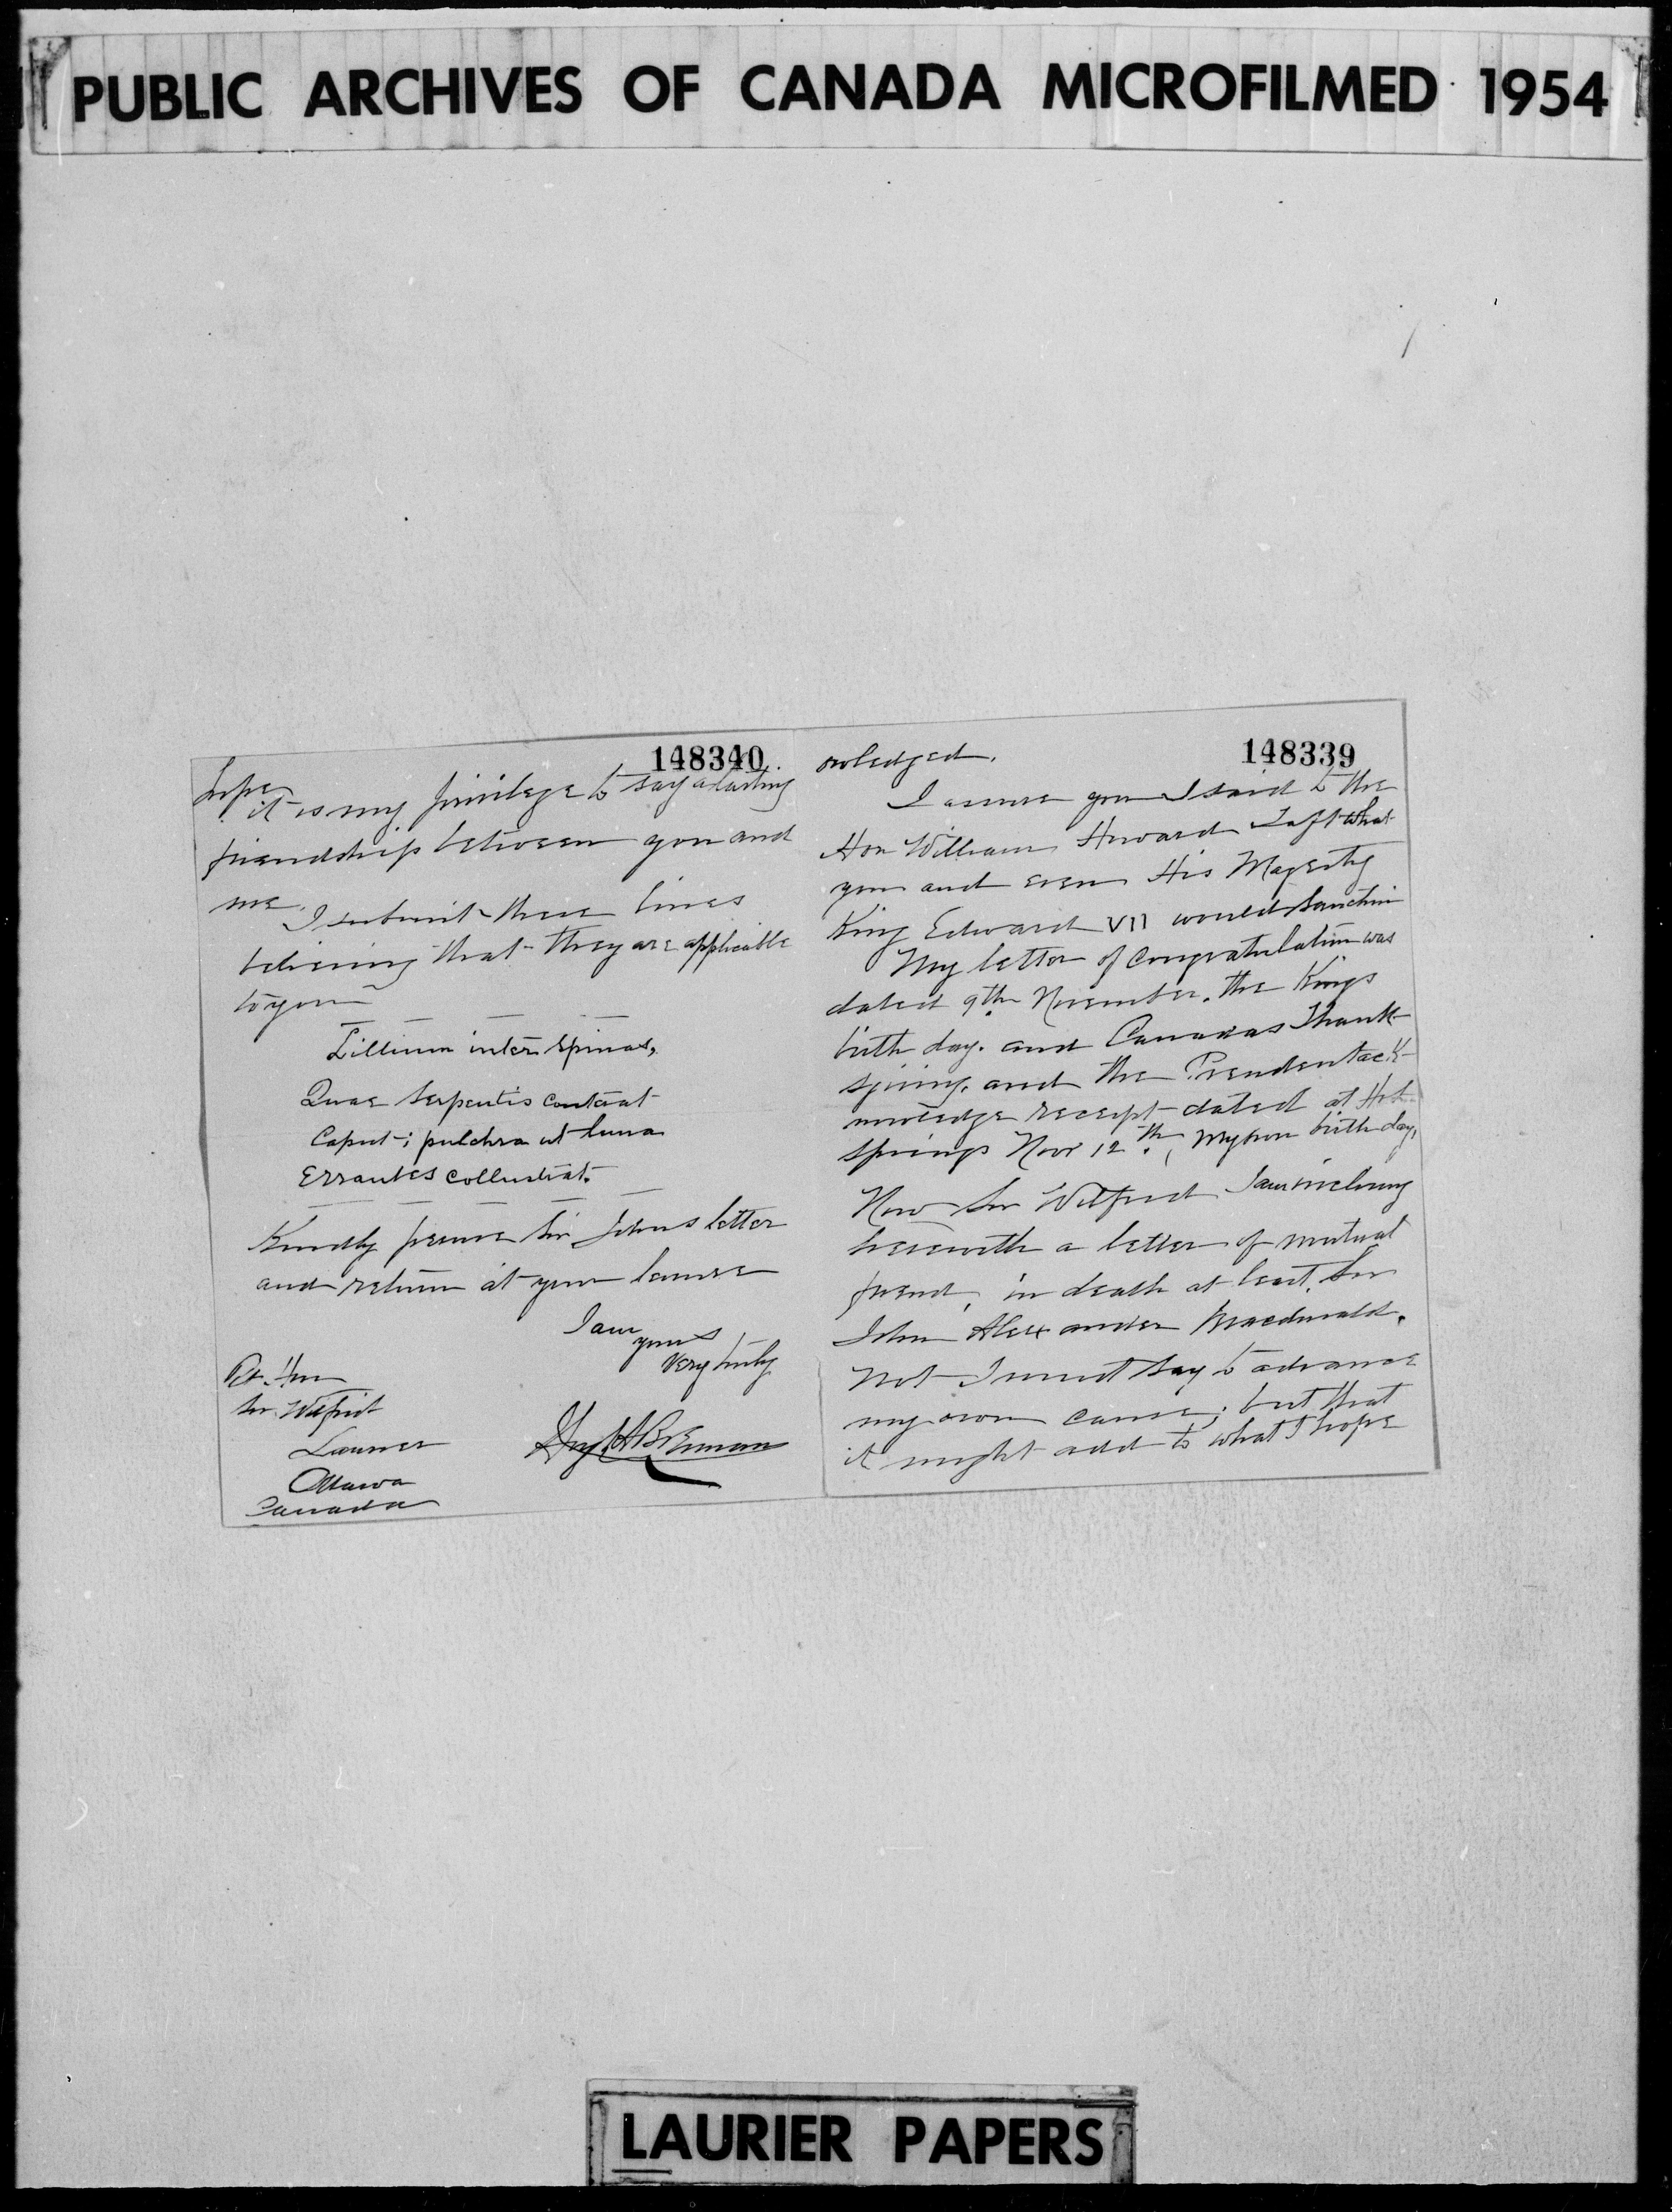 PUBLIC ARCHIVES OF CANADA MICROFILMED 1954
148339
owledged.
I assure you I said to the
Hon William Howard Taft what
you and even His Majesty
King Edward VII would sanction
My letter of congratulation was
dated 9th November. the Kings
birth day. and Canadas Thank-
sgiving. and the President ack-
nowledge receipt dated at Hot
springs Nov 12th, my own birth day,
Now Sir Wilfrid I am inclosing
herewith a letter of mutual
friend, in death at least, Sir
John Alexander Macdonald.
Not I must say to advance
my own cause; but that
it might add to what I hope
148340
hope
it is my privilege to say a lasting
friendship between you and
me.
I submit these lines
believing that they are applicable
to you
Lillium inter spinas,
Quae serpentis conterat
Caput; pulchra ut luna
Errantes collustrat.
Kindly peruse Sir Johns letter
and return at your leisure
I am
yours
Very truly
Rt. Hon
Sir. Wilfrid
Laurier
Ottawa
Canada
LAURIER PAPERS